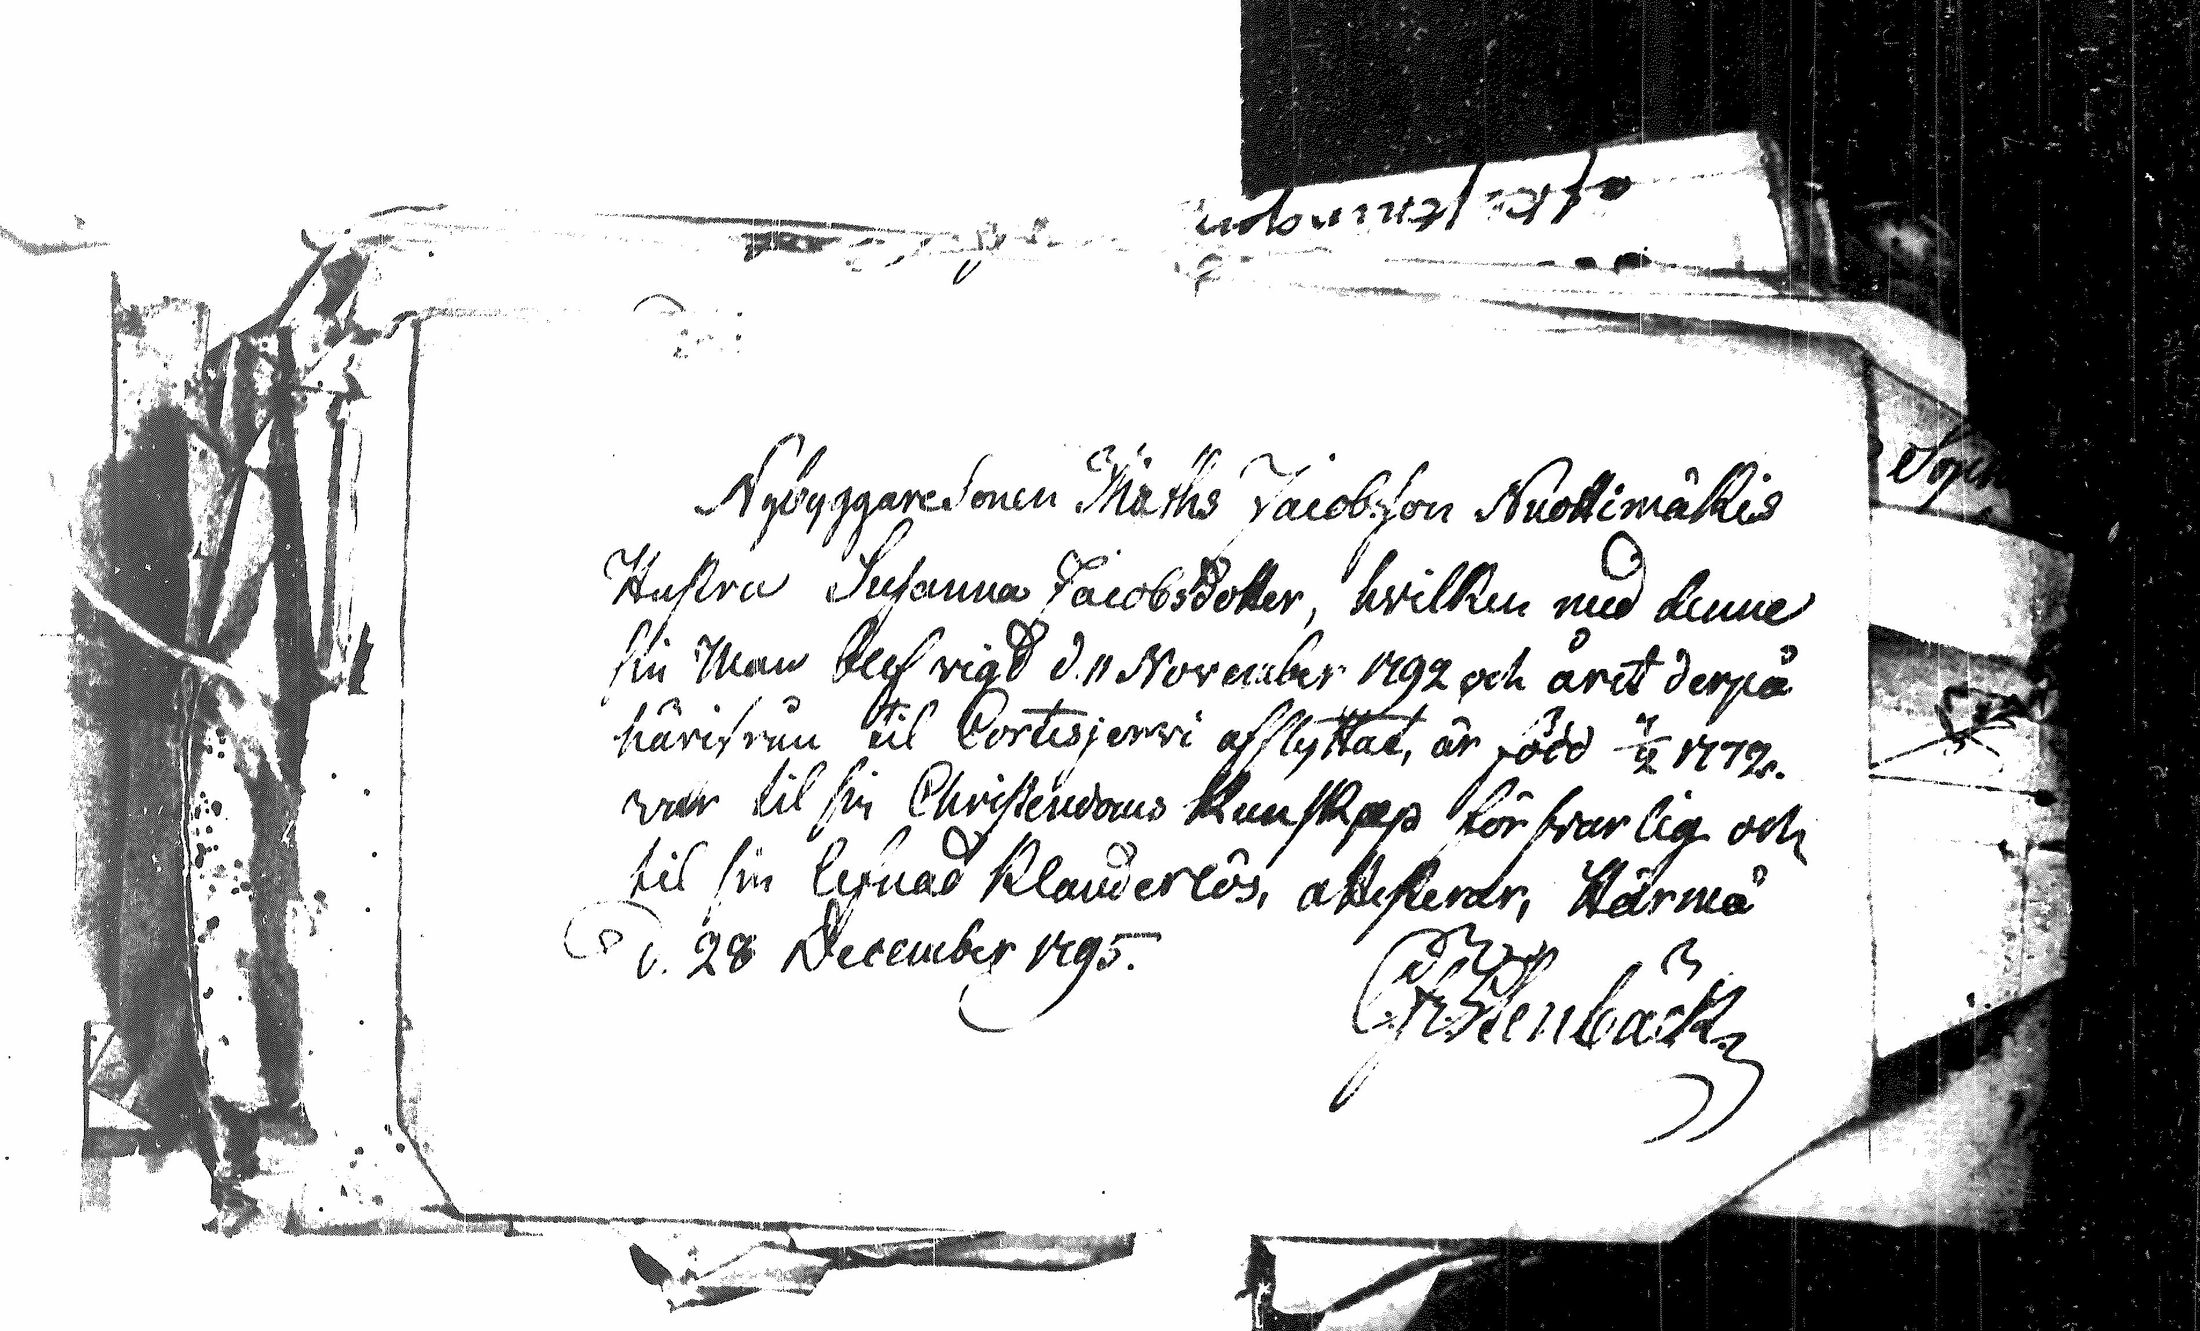 Nybyggaresonen Maths Jacobsson Nuottimäkis
Hustru Susanna Jacobsdotter, hvilken med denne
sin Man blef vigd d. 11 November 1792 och året derpå
härifrån til Cortesjerwi afflyttat, är född 4/2 1772.
war til sin Christendoms kunskap försvarlig och
til sin lefnad klanderlös, attesterar, Härmä
d. 28 December 1795.
Stenbäck